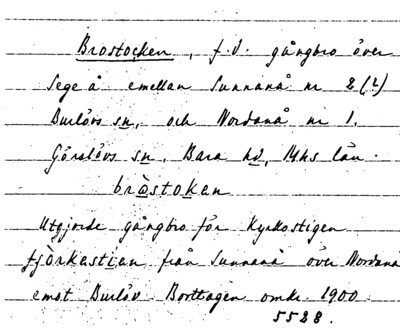 Brostocken, f.d. gångbro över
Sege å emellan Sunnanå nr 2 (L)
Burlövs sn, och Nordanå nr 1.
Görslövs sn, Bara hd, Mhs län.
bròstoken
Utgjorde gångbro för Kyrkostigen
fjòrkastian från Sunnanå över Nordanå
emot Burlöv. Borttagen omkr. 1900.
5528.